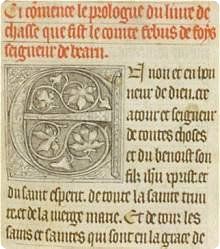 Ci cōmence le prologue du liure de
chasse que fist le comte febus de foys
seigneur de bearn.
E nom et en hon
neur de dieu, cre
atour et seigneur
de toutes choses
et du benoist son
filz ihu xprist et
du saint esperit. de toute la sainte trini
te. et de la uierge marie. Et de tous les
sains et saintes qui sont en la grace de